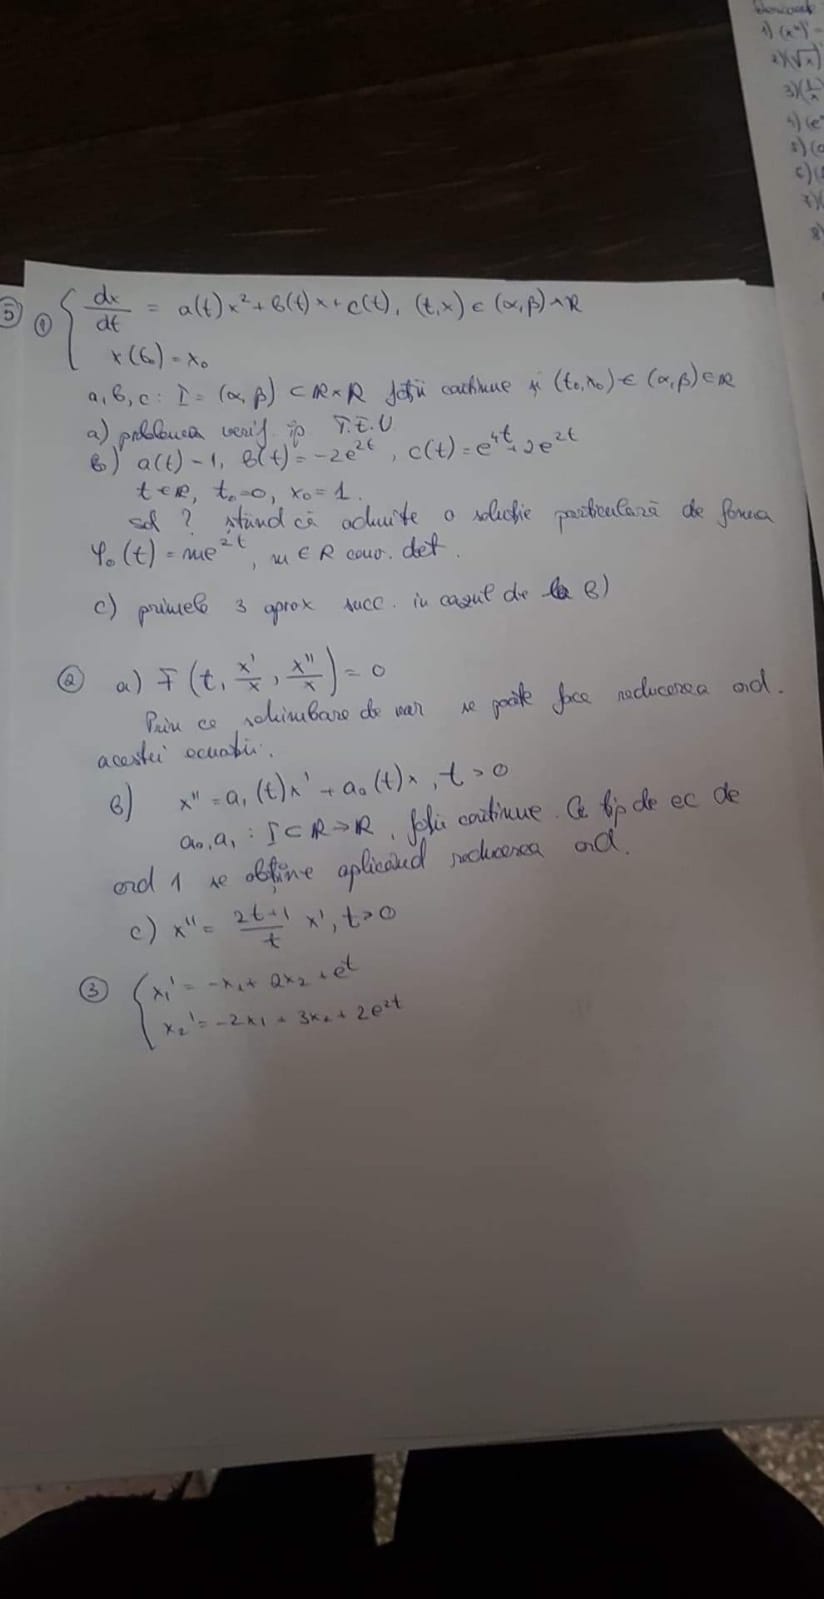 5) ① { dx/dt = a(t)x² + b(t)x + c(t), (t,x) ∈ (α,β)×R
x(t₀) = x₀
a, b, c : I = (α, β) ⊂ R×R fcții continue și (t₀,x₀) ∈ (α,β)∈R
a) problema verif. ip T.E.U
b) a(t)-1, b(t) = -2e^{2t}, c(t) = e^{4t} + 2e^{2t}
t∈R, t₀=0, x₀=1.
sol ? știind că admite o soluție particulară de forma
φ₀(t) = me^{2t}, m ∈ R conv. det.
c) primele 3 aprox succ. in cazul de b)
② a) F(t, x'/x, x''/x) = 0
Prin ce schimbare de var se poate face reducerea ord.
acestei ecuații.
b) x'' = a₁(t)x' + a₀(t)x, t>0
a₀, a₁ : I⊂R→R, fcții continue. Ce tip de ec de
ord 1 se obține aplicând reducerea ord.
c) x'' = (2t+1)/t x', t>0
③ { x₁' = -x₁ + 2x₂ + e^t
x₂' = -2x₁ + 3x₂ + 2e^{2t}
1) (x
2) (√x)
3) (1/x
4) (e
5) (
6) (
7) (
8)